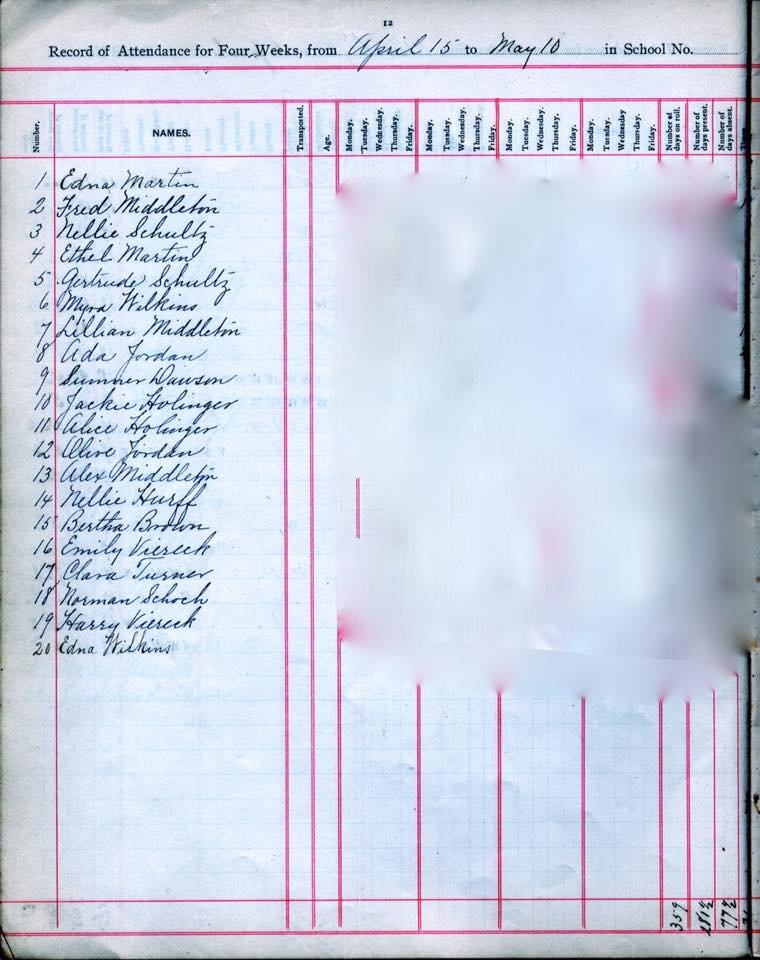 12
Record of Attendance for Four Weeks, from April 15 to May 10 in School No.
Number. NAMES. Transported. Age. Monday. Tuesday. Wednesday. Thursday. Friday. Monday. Tuesday. Wednesday. Thursday. Friday. Monday. Tuesday. Wednesday. Thursday. Friday. Monday. Tuesday. Wednesday Thursday. Friday. Number of days on roll. Number of days present. Number of days absent.
1 Edna Martin
2 Fred Middleton
3 Nellie Schultz
4 Ethel Martin
5 Gertrude Schultz
6 Myra Wilkins
7 Lillian Middleton
8 Ada Jordan
9 Sumner Dawson
10 Jackie Holinger
11 Alice Holinger
12 Olive Jordan
13 Alex Middleton
14 Nellie Hurff
15 Bertha Brown
16 Emily Viereck
17 Clara Turner
18 Norman Schoch
19 Harry Viereck
20 Edna Wilkins
359 77½